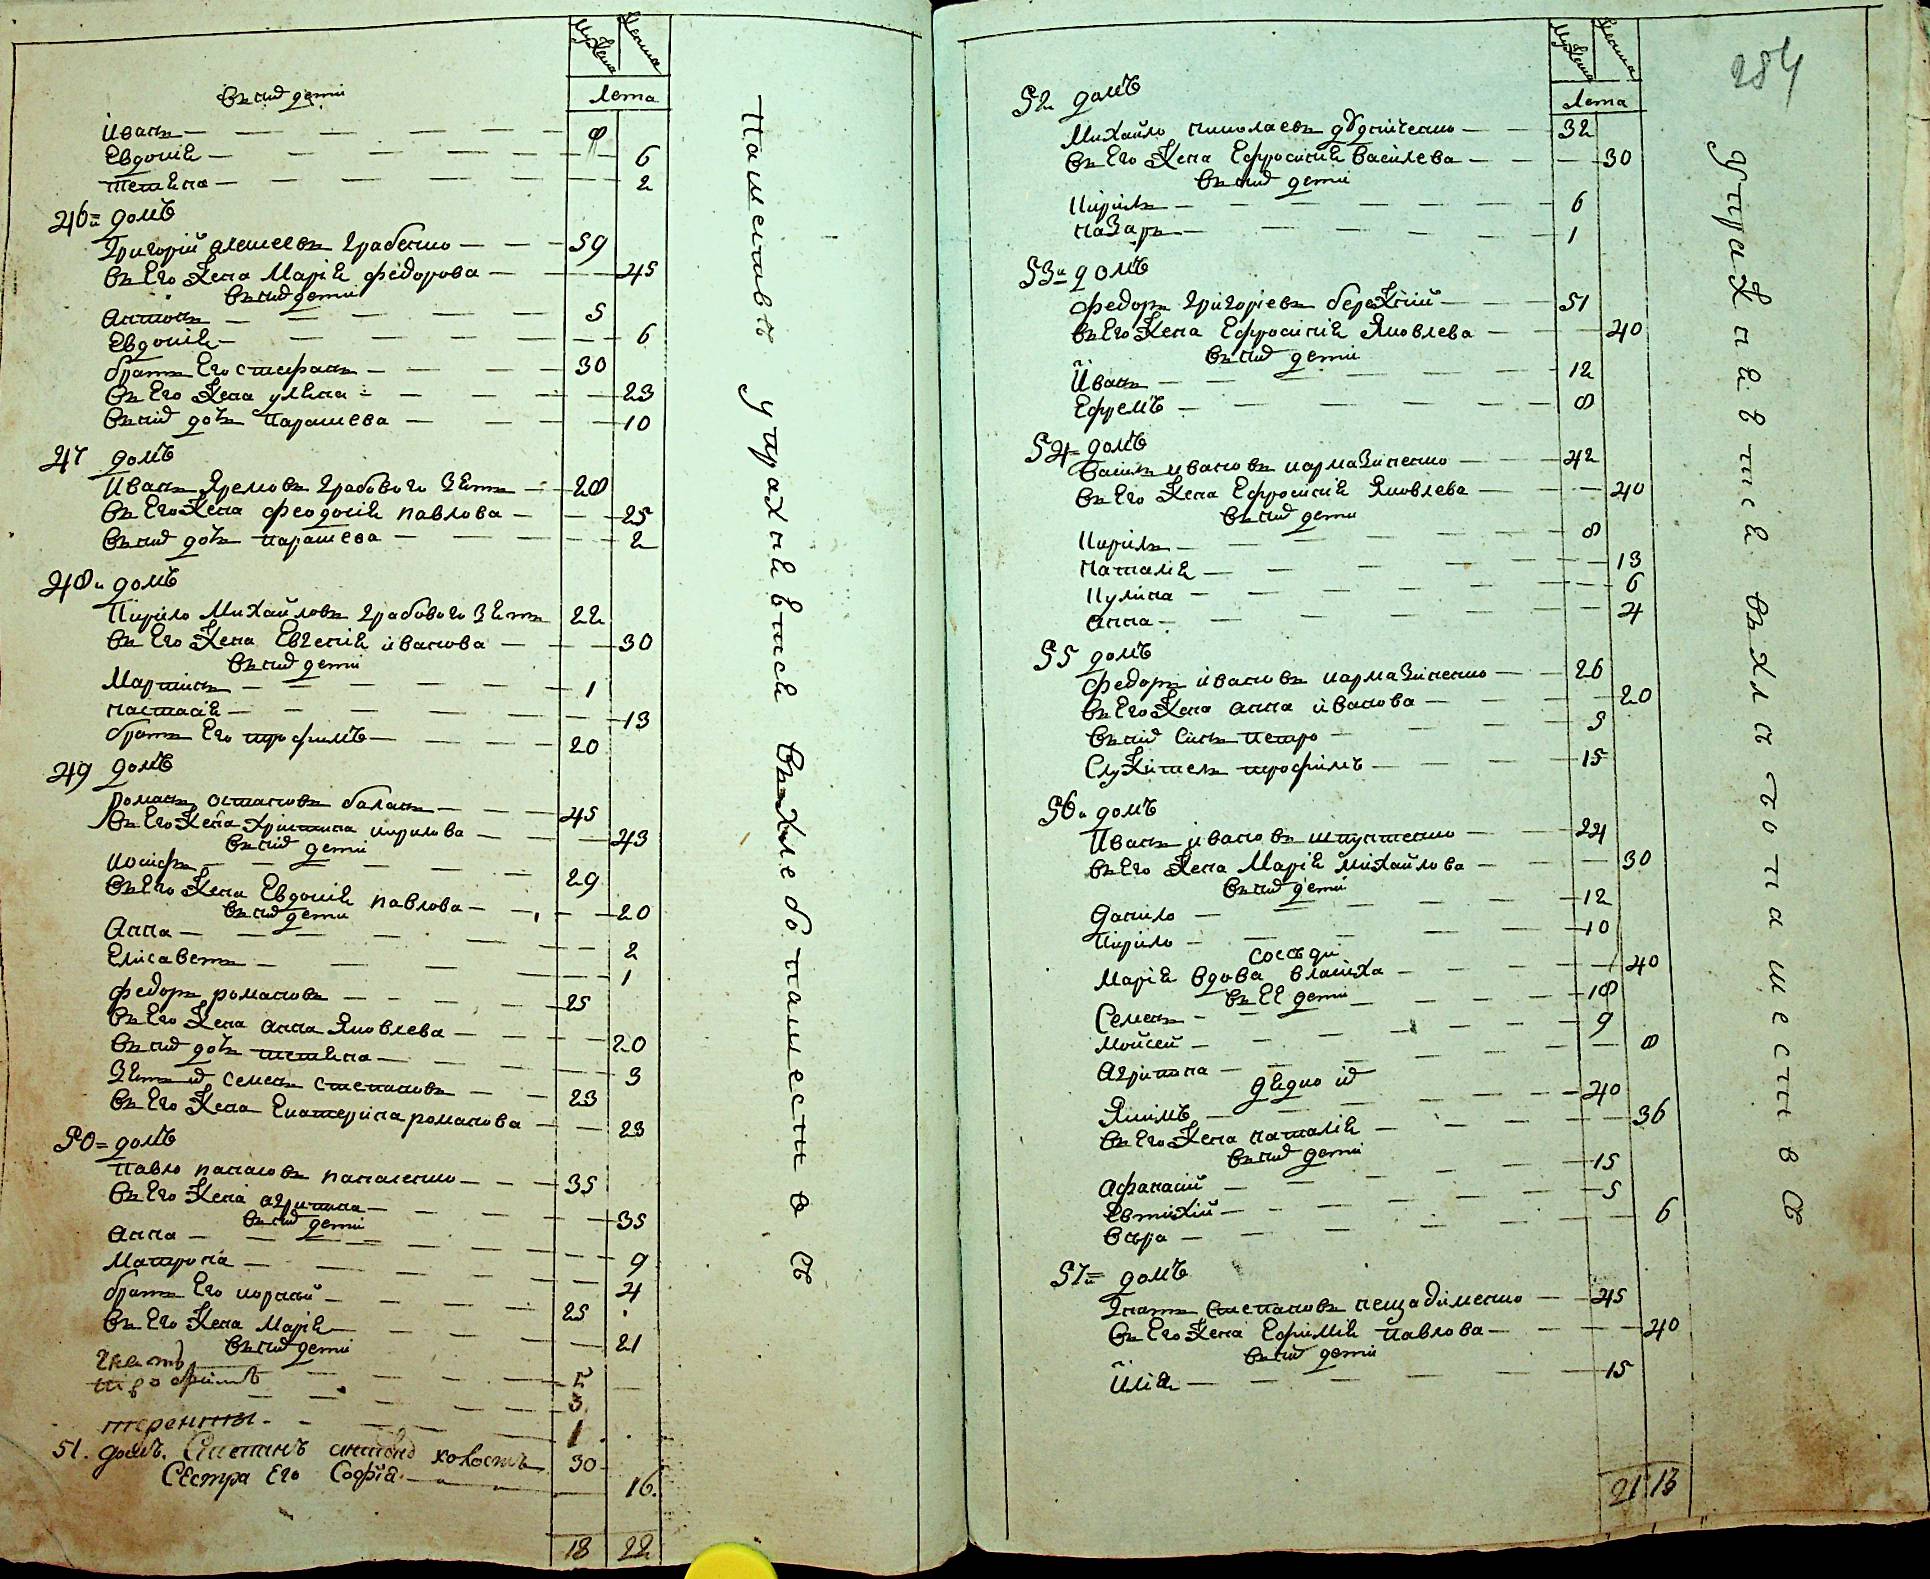 Мужеска
Женска
Лета
Въ нид дети
Иванъ 8
Евдокиѣ 6
Тетѣна 2
46 = домъ
Григорий алексеевъ Грабенко 59
въ Его Жена Мариѣ федорова 45
Въ нид дети
Антонъ 5
Евдокиѣ 6
братъ Его стефанъ 30
въ Его Жена улѣна 23
Въ нид дочь Парашева 10
47 домъ
Иванъ Яремовъ Грабового Зѣть 28
въ Его Жена феодосиѣ павлова 25
Въ нид дочь парашева 2
48 домъ
Кирило Михайловъ Грабового Зѣть 22
въ Его Жена Евгениѣ иванова 30
Въ нид дети
Мартинъ 1
настасиѣ 13
братъ Его трофимъ 20
49 домъ
Романъ остаповъ баланъ 45
въ Его Жена христина кирилова 43
Въ нид дети
Иосифъ 29
въ Его Жена Евдокиѣ павлова 20
Въ нид дети
Анна 2
Елисаветъ 1
федоръ романовъ 25
въ Его Жена анна Яковлева 20
Въ нид дочь тетѣна 3
Зѣть Семенъ степановъ 23
въ Его Жена Екатерина романова 23
50 = домъ
Павло панасовъ панасенко 35
въ Его Жена агрипина 35
Въ нид дети
анна 9
Матрона 4
братъ Его корней 25
въ Его Жена Мариѣ 21
Въ нид дети
Гнатъ 5
трофимъ 3
теренты 1
51. домъ. Степанъ холостъ 30
Сестра Его Софиѣ 16.
18 22
Пашествовъ упражнѣвтисѣ въ Хлебопашество съ
284
Мужеска
Женска
Лета
52 домъ
Михайло николаевъ 32
въ Его Жена Ефросиниѣ Василева 30
Въ нид дети
Кирилъ 6
назаръ 1
53 домъ
федоръ Григориевъ бережний 51
въ Его Жена Ефросиниѣ Яковлева 40
Въ нид дети
Иванъ 12
Ефремъ 8
54 домъ
Василъ ивановъ кармазиненко 42
въ Его Жена Ефросиниѣ Яковлева 40
Въ нид дети
Кирилъ 8
Наталиѣ 13
Кулина 6
анна 4
55 домъ
федоръ ивановъ кармазиненко 26
въ Его Жена анна иванова 20
Въ нид Синъ петро 5
Служитель трофимъ 15
56 домъ
Иванъ ивановъ 24
въ Его Жена Мариѣ михайлова 30
Въ нид дети
данило 12
Кирило 10
соседи
Мариѣ вдова власиха 40
въ ЕЕ дети
Семенъ 18
Мойсей 9
Агрипина 8
Якимъ 40
въ Его Жена наталиѣ 36
Въ нид дети
афанасий 15
Евтихий 5
Вѣра 6
57 = домъ
Гнатъ Степановъ нещадименко 45
въ Его Жена Ефимиѣ павлова 40
Въ нид дети
Илиѣ 15
21 13
Упражнѣвтисѣ въ Хлѣбопашество въ